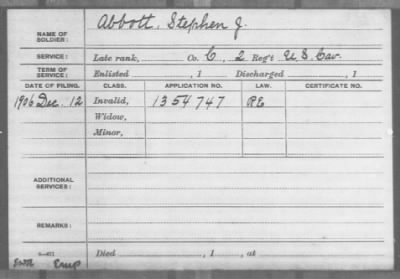 NAME OF SOLDIER: Abbott, Stephen J.
SERVICE: Late rank, Co. C, 2 Reg't U.S. Cav.
TERM OF SERVICE: Enlisted , 1 Discharged , 1
DATE OF FILING. CLASS. APPLICATION NO. LAW. CERTIFICATE NO.
1906 Dec. 12 Invalid, 1354747
Widow,
Minor,
ADDITIONAL SERVICES:
REMARKS:
Died , 1 , at